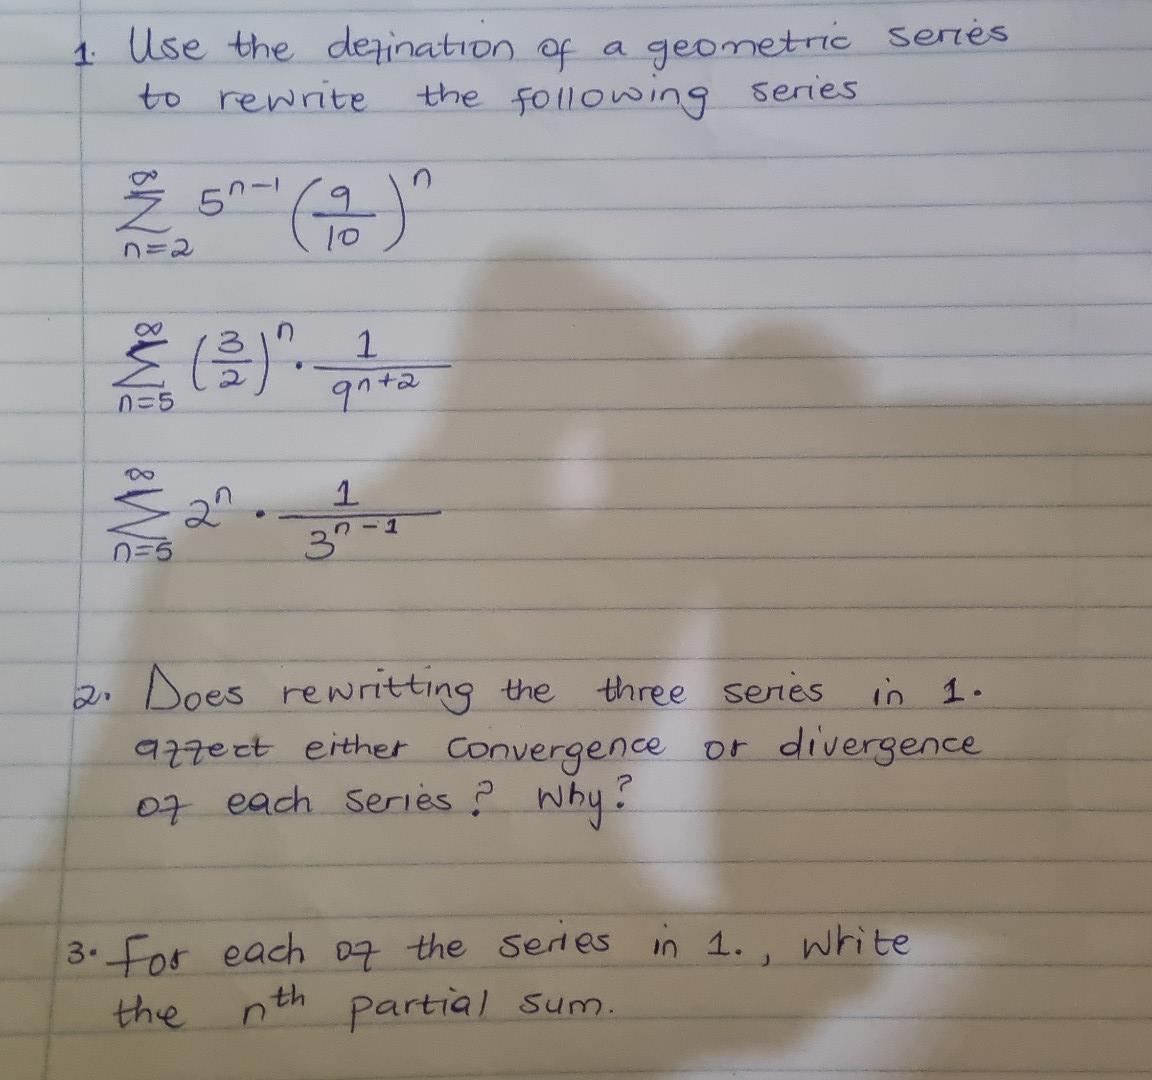 1. Use the defination of a geometric series
to rewrite the following series
∞
∑ 5^{n-1} (9/10)^n
n=2
∞
∑ (3/2)^n · 1/9^{n+2}
n=5
∞
∑ 2^n · 1/3^{n-1}
n=5
2. Does rewritting the three series in 1.
affect either convergence or divergence
of each series? Why?
3. For each of the series in 1., write
the n^{th} partial sum.